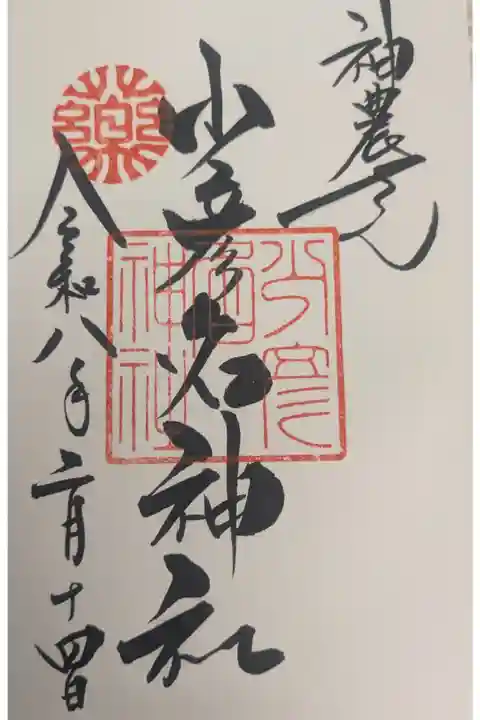 神農さん
少彦名神社
令和八年二月十四日
少彦名神社
藥